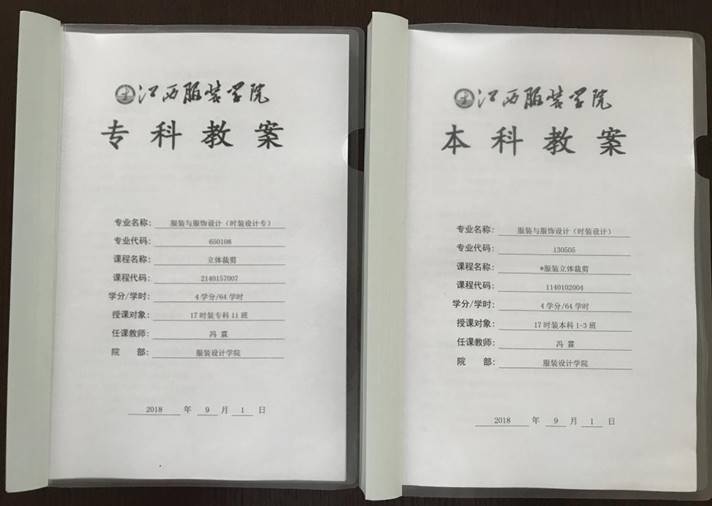 江西服装学院
专科教案
专业名称： 服装与服饰设计（时装设计专）
专业代码： 650108
课程名称： 立体裁剪
课程代码： 2140157007
学分/学时： 4学分/64学时
授课对象： 17时装专科11班
任课教师： 冯霖
院 部： 服装设计学院
2018 年 9 月 1 日
江西服装学院
本科教案
专业名称： 服装与服饰设计（时装设计）
专业代码： 130505
课程名称： *服装立体裁剪
课程代码： 1140102004
学分/学时： 4学分/64学时
授课对象： 17时装本科1-3班
任课教师： 冯霖
院 部： 服装设计学院
2018 年 9 月 1 日